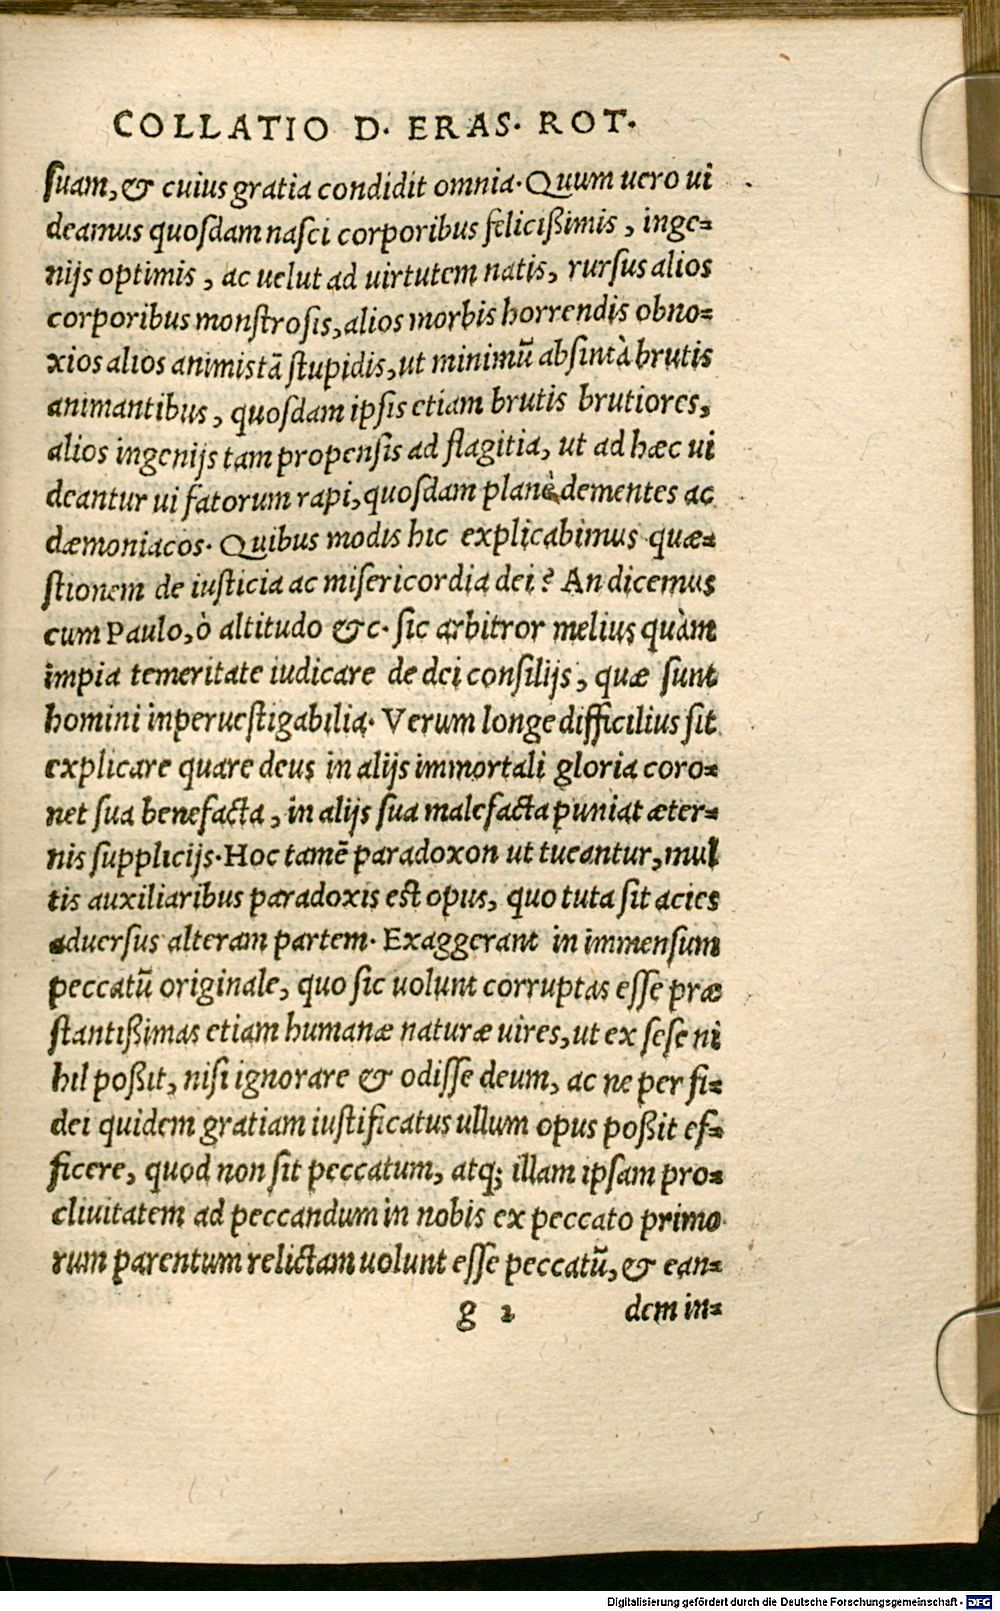 COLLATIO D. ERAS. ROT.
suam, & cuius gratia condidit omnia. Quum uero ui
deamus quosdam nasci corporibus felicißimis, inge=
nijs optimis, ac uelut ad uirtutem natis, rursus alios
corporibus monstrosis, alios morbis horrendis obno=
xios alios animis tã stupidis, ut minimũ absint à brutis
animantibus, quosdam ipsis etiam brutis brutiores,
alios ingenijs tam propensis ad flagitia, ut ad hæc ui
deantur ui fatorum rapi, quosdam planè dementes ac
dæmoniacos. Quibus modis hic explicabimus quæ=
stionem de iusticia ac misericordia dei? An dicemus
cum Paulo, ò altitudo &c. sic arbitror melius quàm
impia temeritate iudicare de dei consilijs, quæ sunt
homini inperuestigabilia. Verum longe difficilius sit
explicare quare deus in alijs immortali gloria coro=
net sua benefacta, in alijs sua malefacta puniat æter=
nis supplicijs. Hoc tamẽ paradoxon ut tueantur, mul
tis auxiliaribus paradoxis est opus, quo tuta sit acies
aduersus alteram partem. Exaggerant in immensum
peccatũ originale, quo sic uolunt corruptas esse præ
stantißimas etiam humanæ naturæ uires, ut ex sese ni
hil poßit, nisi ignorare & odisse deum, ac ne per fi=
dei quidem gratiam iustificatus ullum opus poßit ef=
ficere, quod non sit peccatum, atq; illam ipsam pro=
cliuitatem ad peccandum in nobis ex peccato primo
rum parentum relictam uolunt esse peccatũ, & ean=
g 2 dem in=
Digitalisierung gefördert durch die Deutsche Forschungsgemeinschaft - DFG